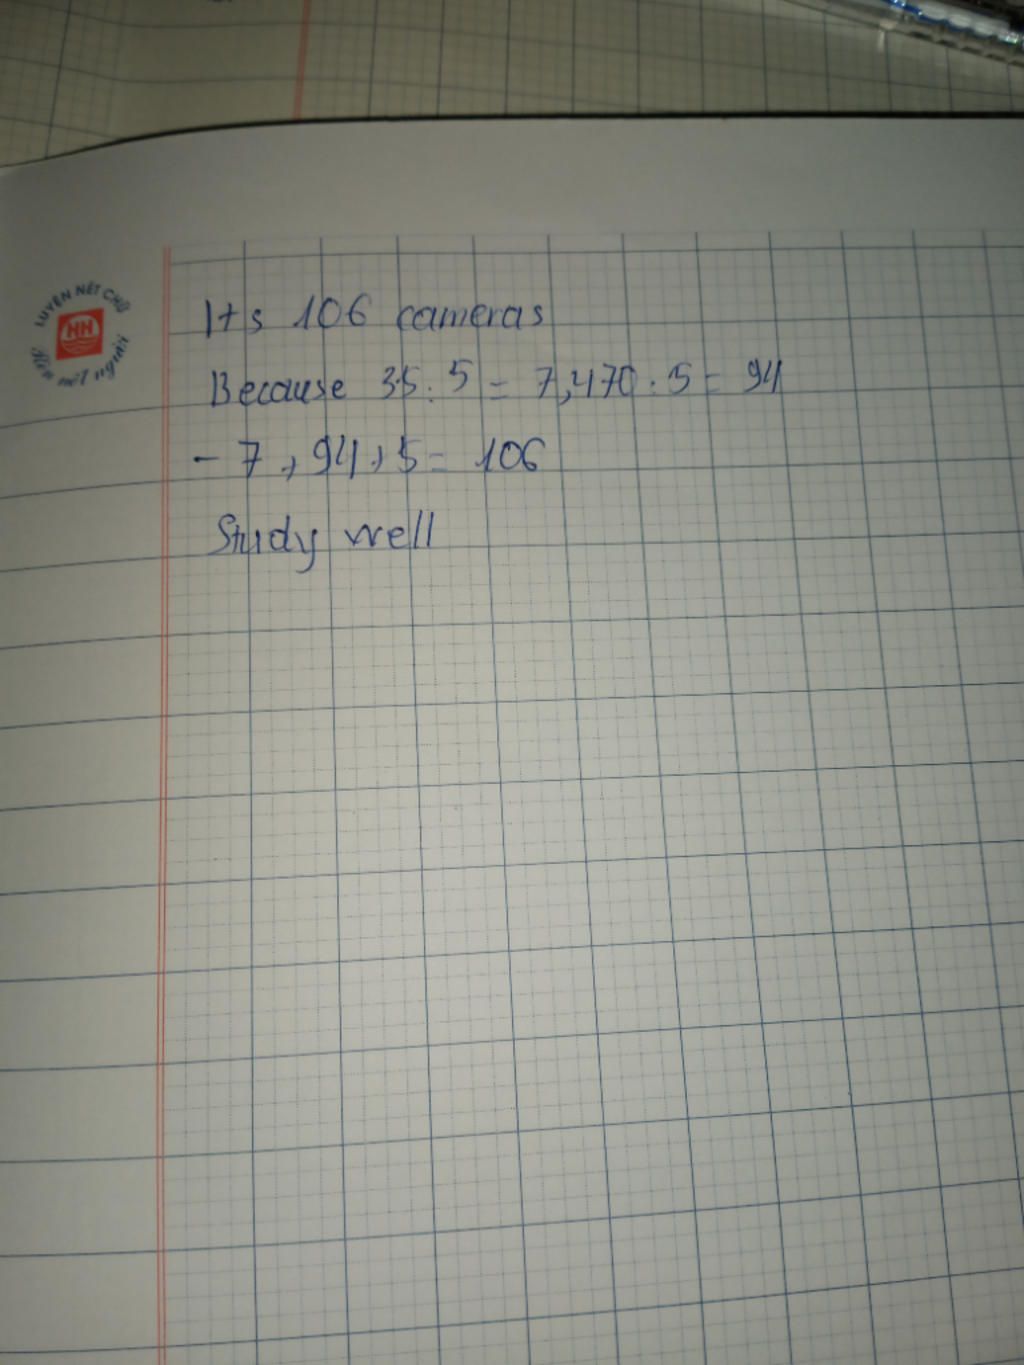 LUYỆN NÉT CHỮ
HH
Rèn nết người
Its 106 cameras
Because 35:5 = 7,470:5 = 94
- 7 + 94 + 5 = 106
Study well